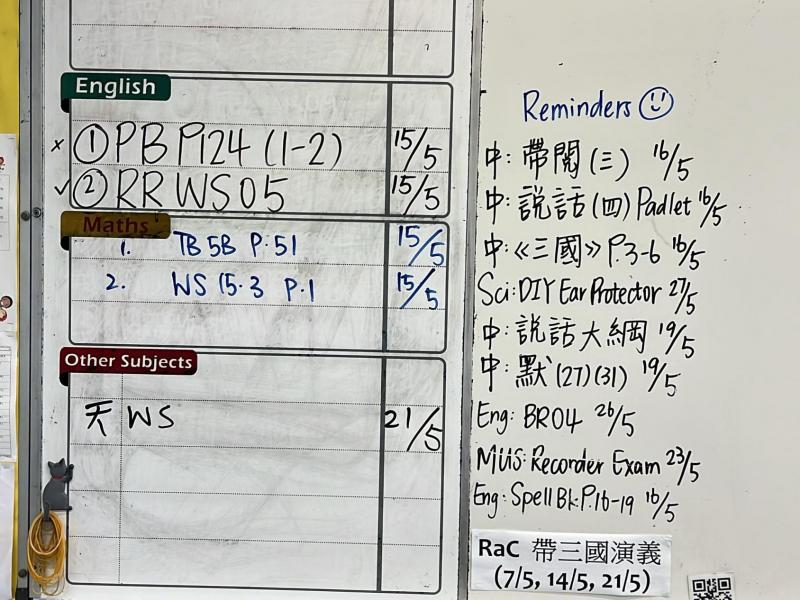 English
× ① PB P.124 (1-2) 15/5
✓ ② RR WS05 15/5
Maths
1. TB 5B P.51 15/5
2. WS 15.3 P.1 15/5
Other Subjects
天 WS 21/5
Reminders ☺
中: 帶閱(三) 16/5
中: 說話(四) Padlet 16/5
中:《三國》P.3-6 16/5
Sci: DIY Ear Protector 27/5
中: 說話大綱 19/5
中: 默(27)(31) 19/5
Eng: BR04 26/5
MUS: Recorder Exam 23/5
Eng: Spell Bk P.16-19 16/5
RaC 帶三國演義
(7/5, 14/5, 21/5)